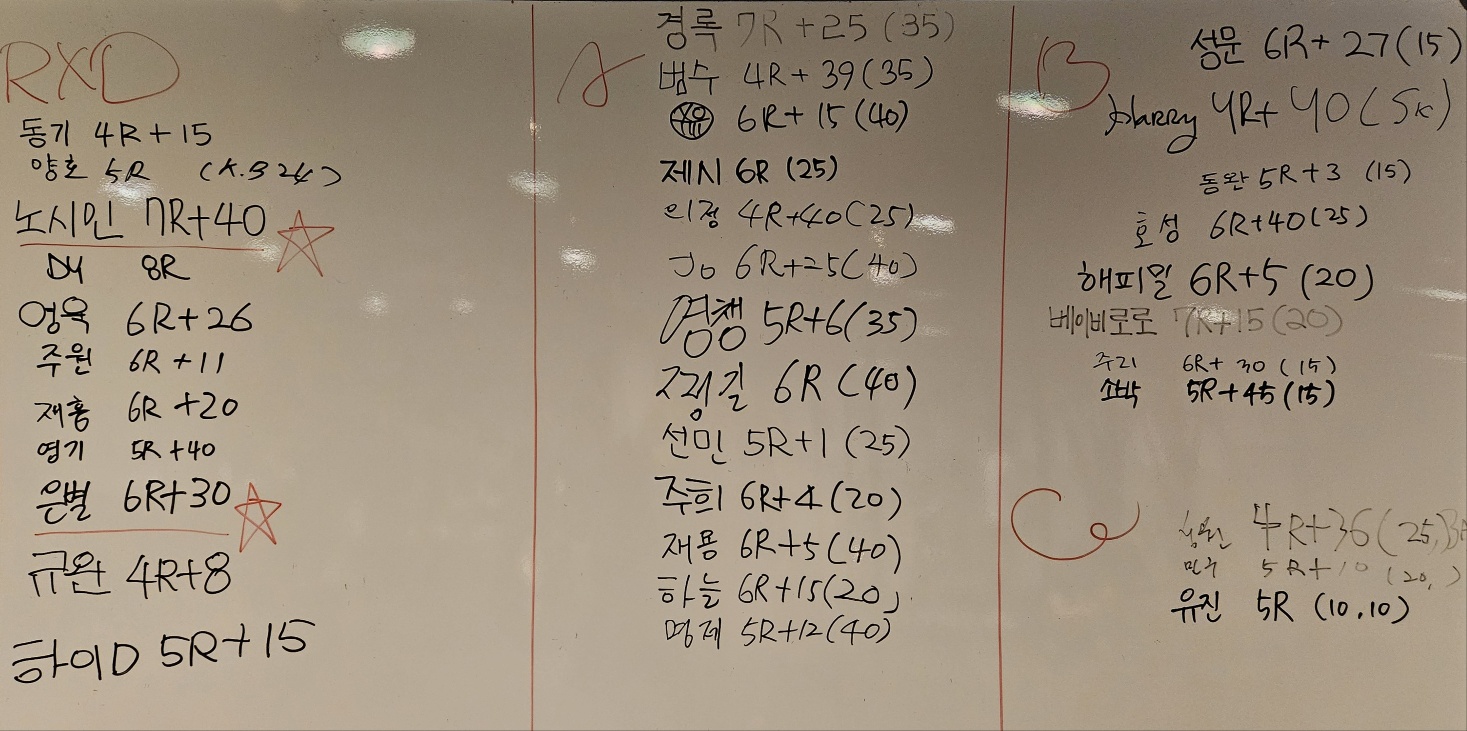 RXD
동기 4R+15
양호 5R (A.B 24)
노시민 7R+40
DY 8R
엉육 6R+26
주원 6R+11
재홍 6R+20
엽기 5R+40
은별 6R+30
규완 4R+8
하이D 5R+15
A
경록 7R+25 (35)
범수 4R+39 (35)
6R+15 (40)
제시 6R (25)
의정 4R+40 (25)
Jo 6R+25 (40)
영챙 5R+6 (35)
정길 6R (40)
선민 5R+1 (25)
주희 6R+4 (20)
재용 6R+5 (40)
하늘 6R+15 (20)
명제 5R+12 (40)
B
성문 6R+27 (15)
Harry 4R+40 (5k)
동완 5R+3 (15)
호성 6R+40 (25)
해피밀 6R+5 (20)
베이비로로 7R+15 (20)
주리 6R+30 (15)
소박 5R+45 (15)
C
4R+36 (25,
민규 5R+10 (20, )
유진 5R (10.10)